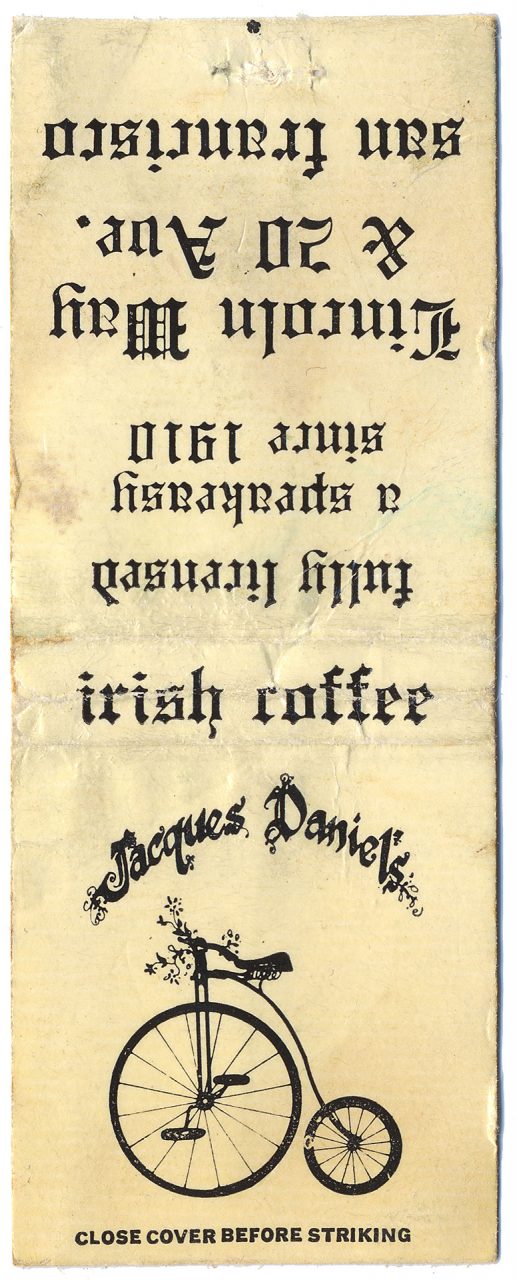 fully licensed
a speakeasy
since 1910
Lincoln Way
& 20 Ave.
san francisco
irish coffee
Jacques Daniel's
CLOSE COVER BEFORE STRIKING